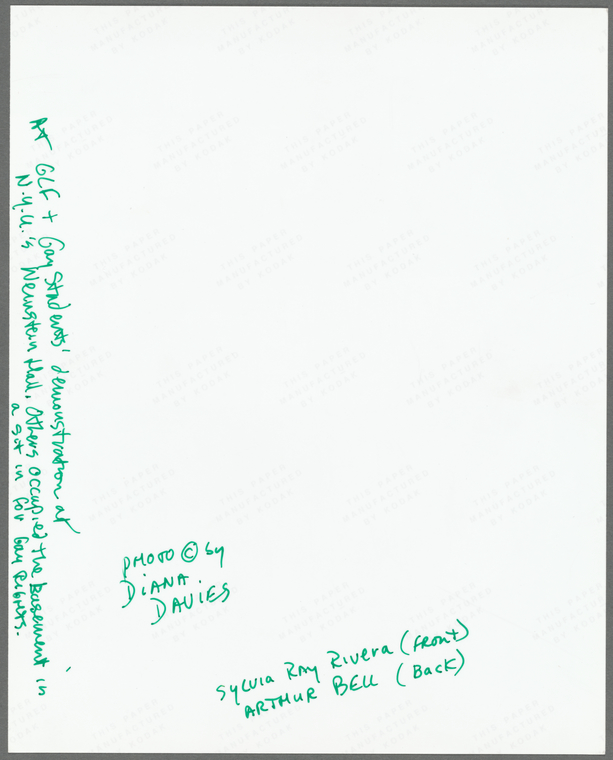 At GLF + Gay Students' demonstration at
N.Y.U.'s Weinstein Hall. Others occupied the basement in
a sit in for Gay Rights.
PHOTO © by
DIANA
DAVIES
Sylvia Ray Rivera (Front)
ARTHUR BELL (Back)
THIS PAPER
MANUFACTURED
BY KODAK